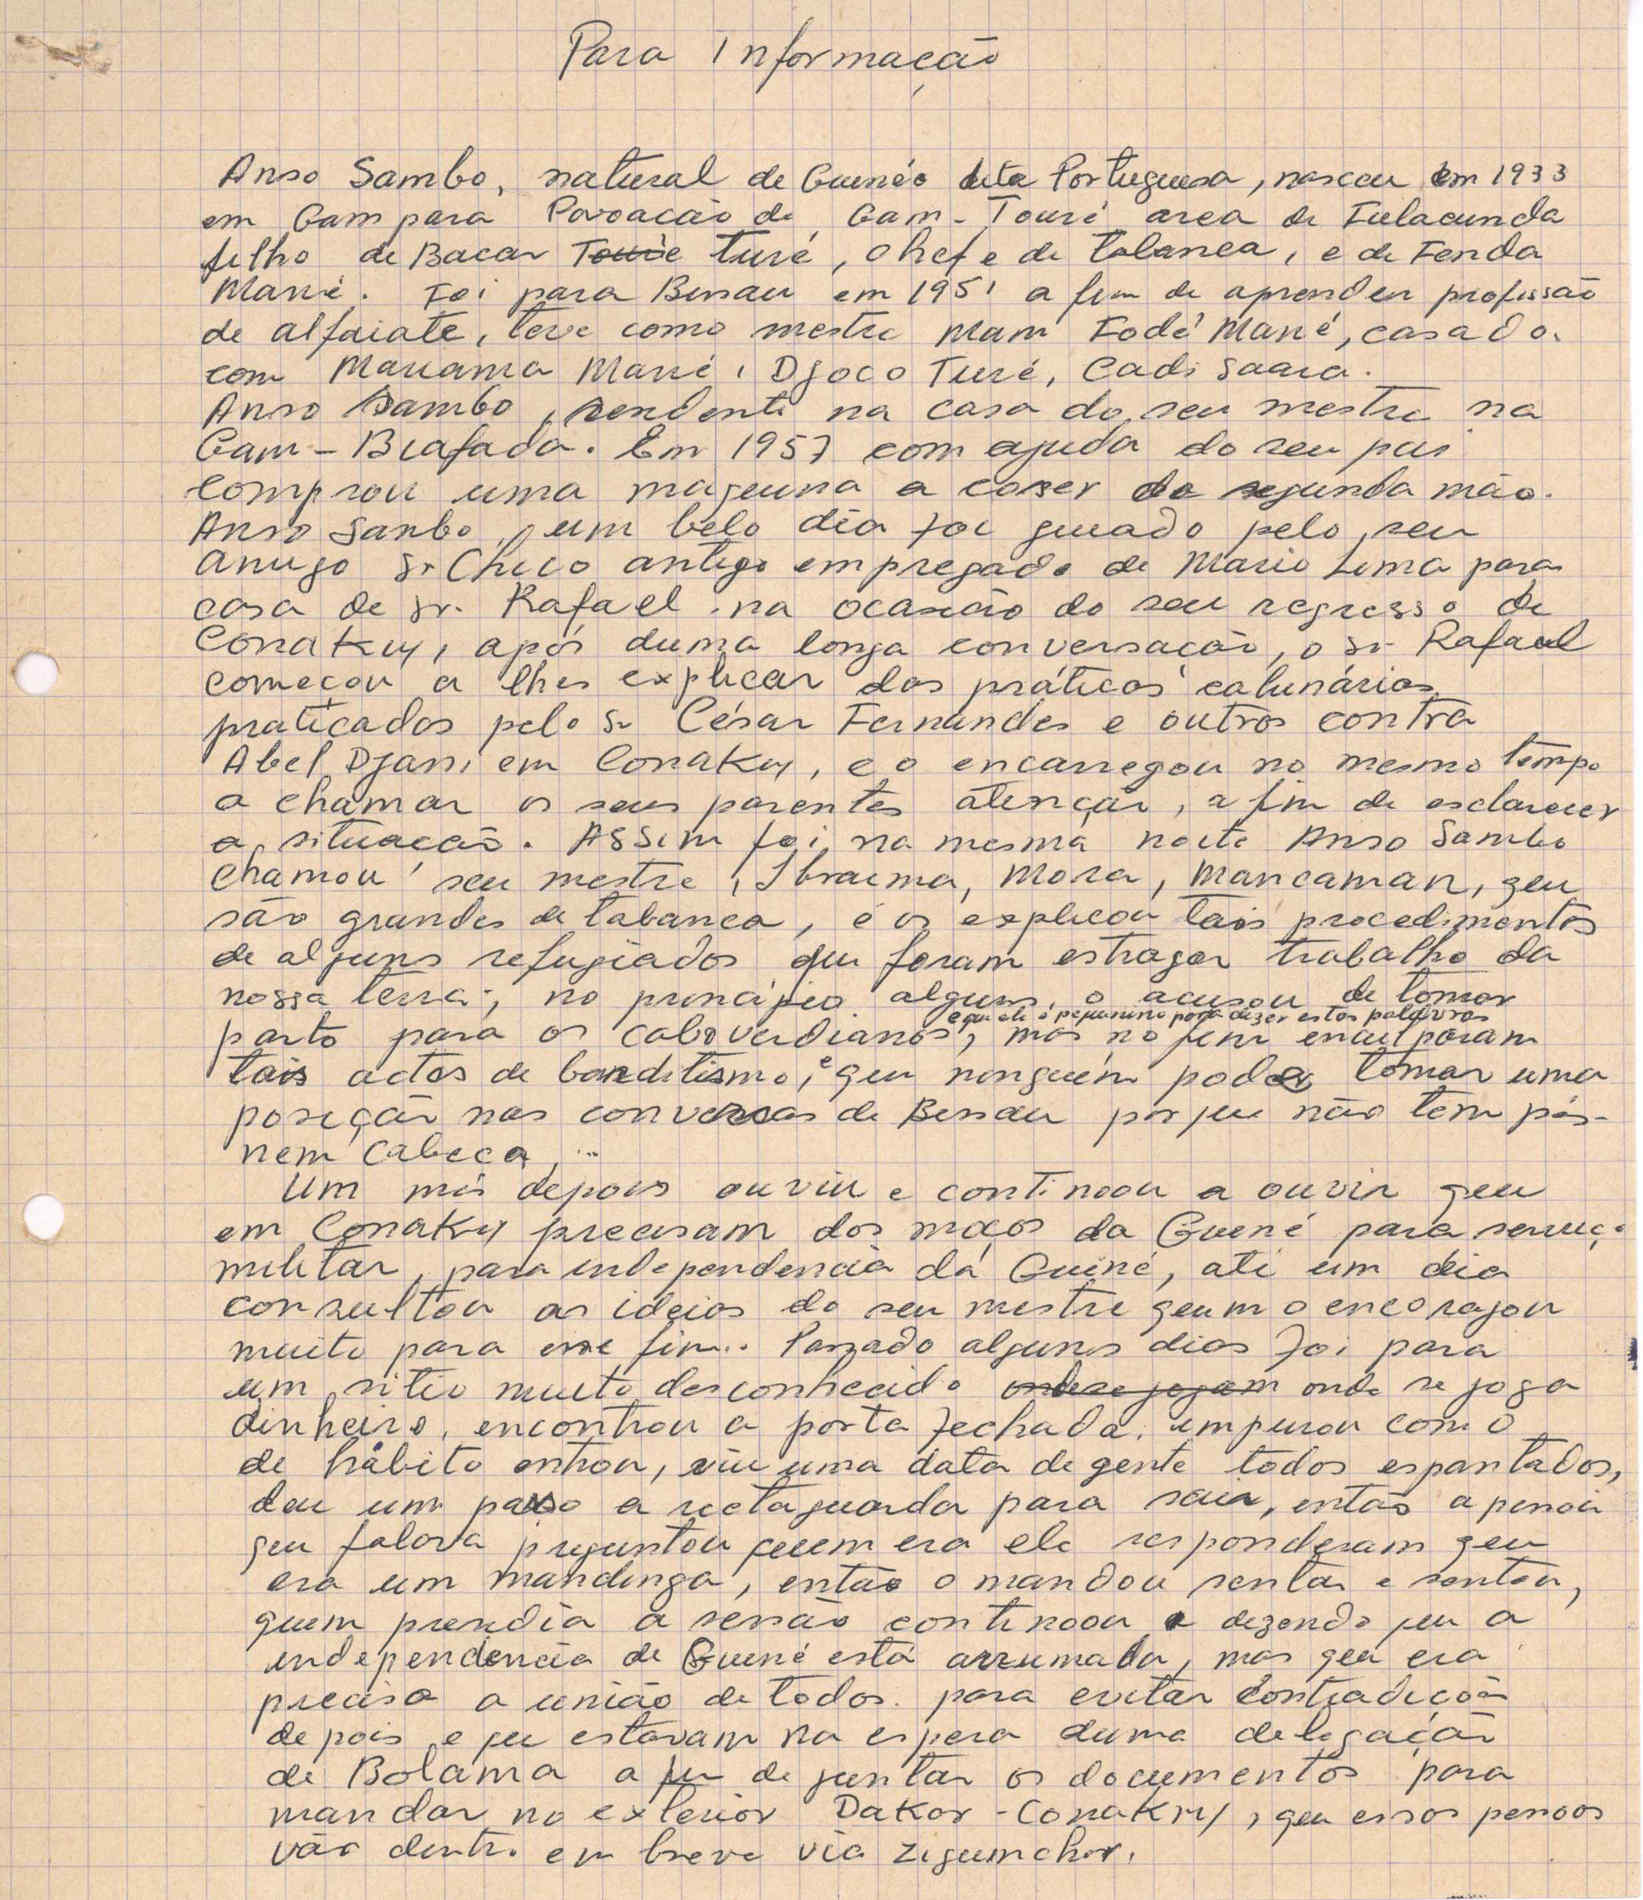 Para Informação
Anso Sambo, natural de Guinéo dita Portuguesa, nasceu em 1933
em Gampara Povoacão de Gam-Touré area de Fulacunda
filho de Bacar Touré turé, chefe de tabanca, e de Fenda
Mané. Foi para Bissau em 1951 a fim de aprender profissão
de alfaiate, teve como mestre Mam Fodé Mané, casado.
com Mariama Mané, Djoco Turé, Cadi Saara.
Anso Sambo, residente na casa do seu mestre na
Gam-Biafada. Em 1957 com ajuda do seu pai
comprou uma maquina a coser de segunda mão.
Anso Sanbo, um belo dia foi guiado pelo seu
amigo Sr Chico antigo empregado de Mario Lima para
casa de Sr. Rafael na ocasião do seu regresso de
Conakry, após duma longa conversação, o Sr Rafael
começou a lhes explicar das práticas calunárias
praticados pelo Sr César Fernandes e outros contra
Abel Djani em Conakry, e o encarregou no mesmo tempo
a chamar os seus parentes atenção, a fim de esclarecer
a situacão. Assim foi, na mesma noite Anso Sambo
chamou seu mestre, Ibraima, Mora, Mancaman, que
são grandes de tabanca, e os explicou tais procedimentos
de alguns refugiados que foram estragar trabalho da
nossa terra; no principio alguns, o acusou de tomar
e que ele é pequenino para dizer estas palavras
parto para os caboverdianos, mas no fim enculparam
tais actos de banditismo, e que ninguém pode tomar uma
posição nas conversas de Bissau porque não tem pés
nem cabeca...
Um mês depois ouviu e continoou a ouvir que
em Conakry precisam dos moços da Guiné para serviço
militar, para independencia da Guiné, até um dia
consultou as ideias do seu mestre quem o encorajou
muito para esse fim.. Passado alguns dias foi para
um sitio muito desconhecido onde se jogam onde se joga
dinheiro, encontrou a porta fechada, impurou como
de hábito entrou, viu uma data de gente todos espantados,
deu um passo a rectaguarda para sair, então a pessoa
que falava preguntou quem era ele responderam que
era um mandinga, então o mandou sentar e sentou,
quem presidia a sessão continoou a dizendo que a
independencia de Guiné está arrumada, mas que era
preciso a união de todos. para evitar contradição
depois, e que estavam na espera duma delegação
de Bolama a fim de juntar os documentos para
mandar no exterior Dakar-Conakry, que essas pessoas
vão dentro em breve via Zeguinchor.